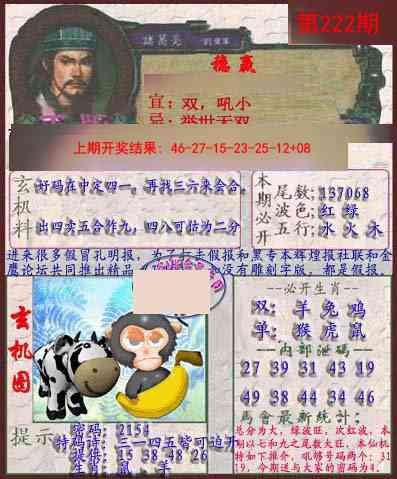 第222期
諸葛亮
穩贏
宜：双，吼小
忌：举世无双
上期开奖结果: 46-27-15-23-25-12+08
玄机料
好码在中定四一。再找三六来会合。
出四卖五合作九，四八可估为二分
本期必开
尾数：137068
波色：红 绿
五行：水 火 木
进来很多假冒孔明报，为了打击假报和黑专本辉煌报社联和金
鹰论坛共同推出精品
没有雕刻字版，都是假报。
玄机图
--必开生肖--
双：羊 兔 鸡
单：猴 虎 鼠
--内部泄码--
27 39 31 43 19
49 38 44 34 46
馬會最新統計：
总分为大，绿波旺，次红波，本
期以七和九之尾数大旺。本仙机
特如下推介，吼够号码两个：31
19，今期送与大家的密码为4。
提示
密码：2154
特码诗：三一四五皆可迫开
提供：15 38 48 26
生肖：鼠 羊